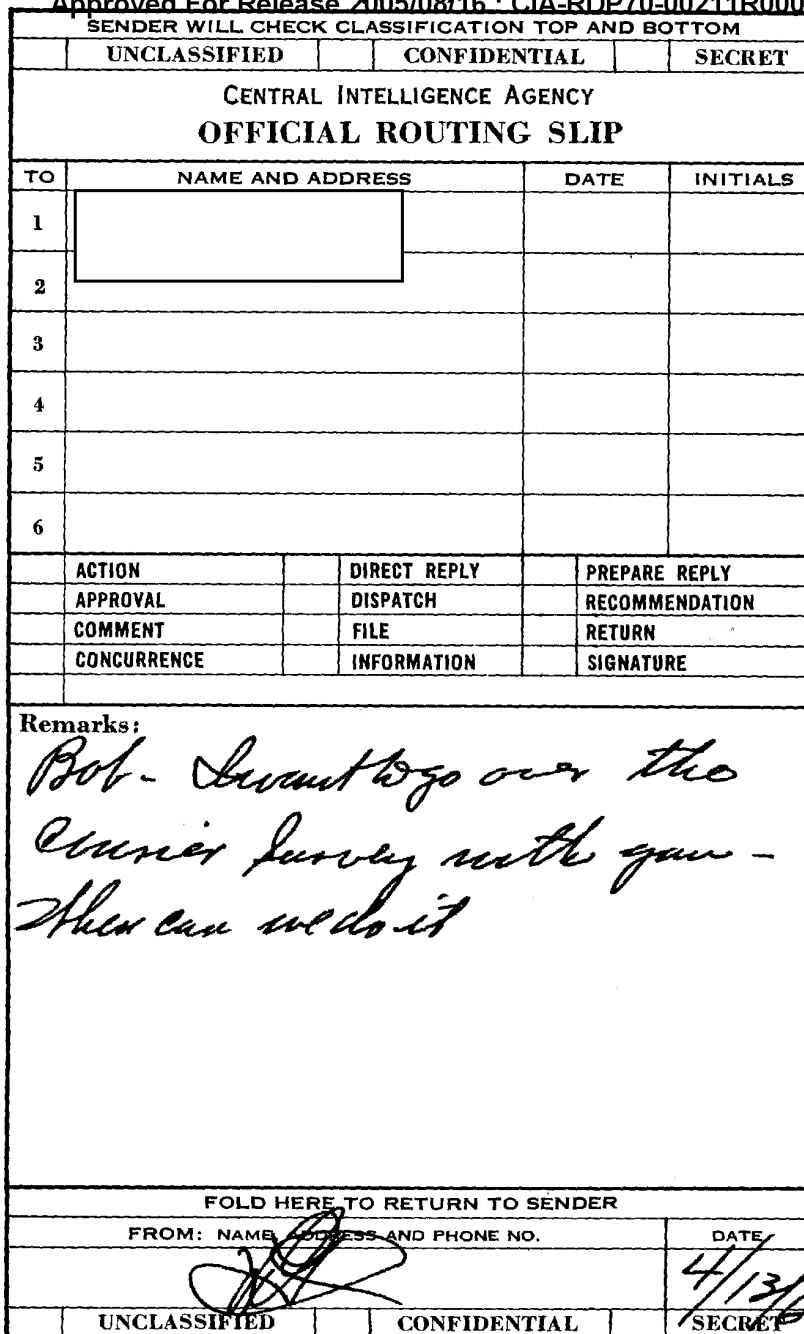 Approved For Release 2005/08/16 : CIA-RDP70-00211R000
SENDER WILL CHECK CLASSIFICATION TOP AND BOTTOM
UNCLASSIFIED CONFIDENTIAL SECRET
CENTRAL INTELLIGENCE AGENCY
OFFICIAL ROUTING SLIP
TO NAME AND ADDRESS DATE INITIALS
1
2
3
4
5
6
ACTION DIRECT REPLY PREPARE REPLY
APPROVAL DISPATCH RECOMMENDATION
COMMENT FILE RETURN
CONCURRENCE INFORMATION SIGNATURE
Remarks:
Bob - I want to go over the
Courier Survey with you -
When can we do it
FOLD HERE TO RETURN TO SENDER
FROM: NAME, ADDRESS AND PHONE NO. DATE
4/13/6
UNCLASSIFIED CONFIDENTIAL SECRET